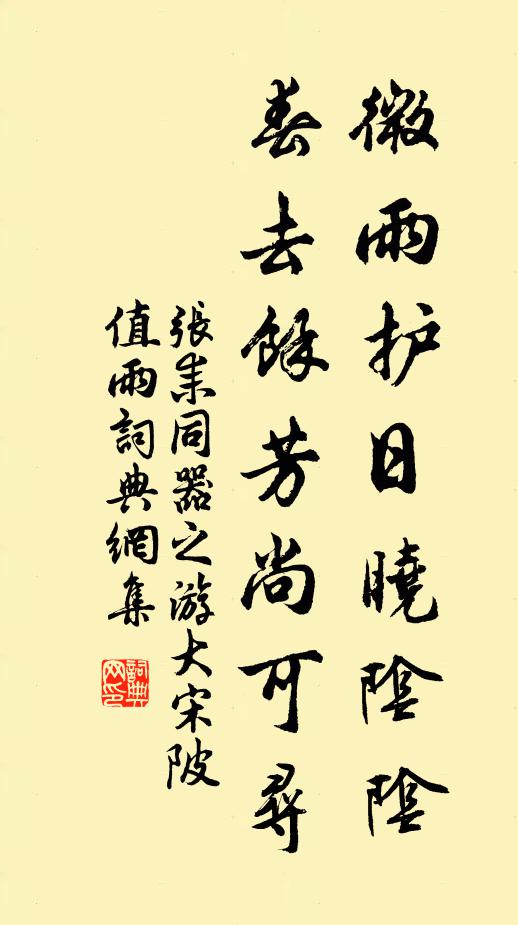 微雨护日曉陰陰
春去餘芳尚可尋
張耒同器之游大宋陂
值雨詞典網集
詞典網印